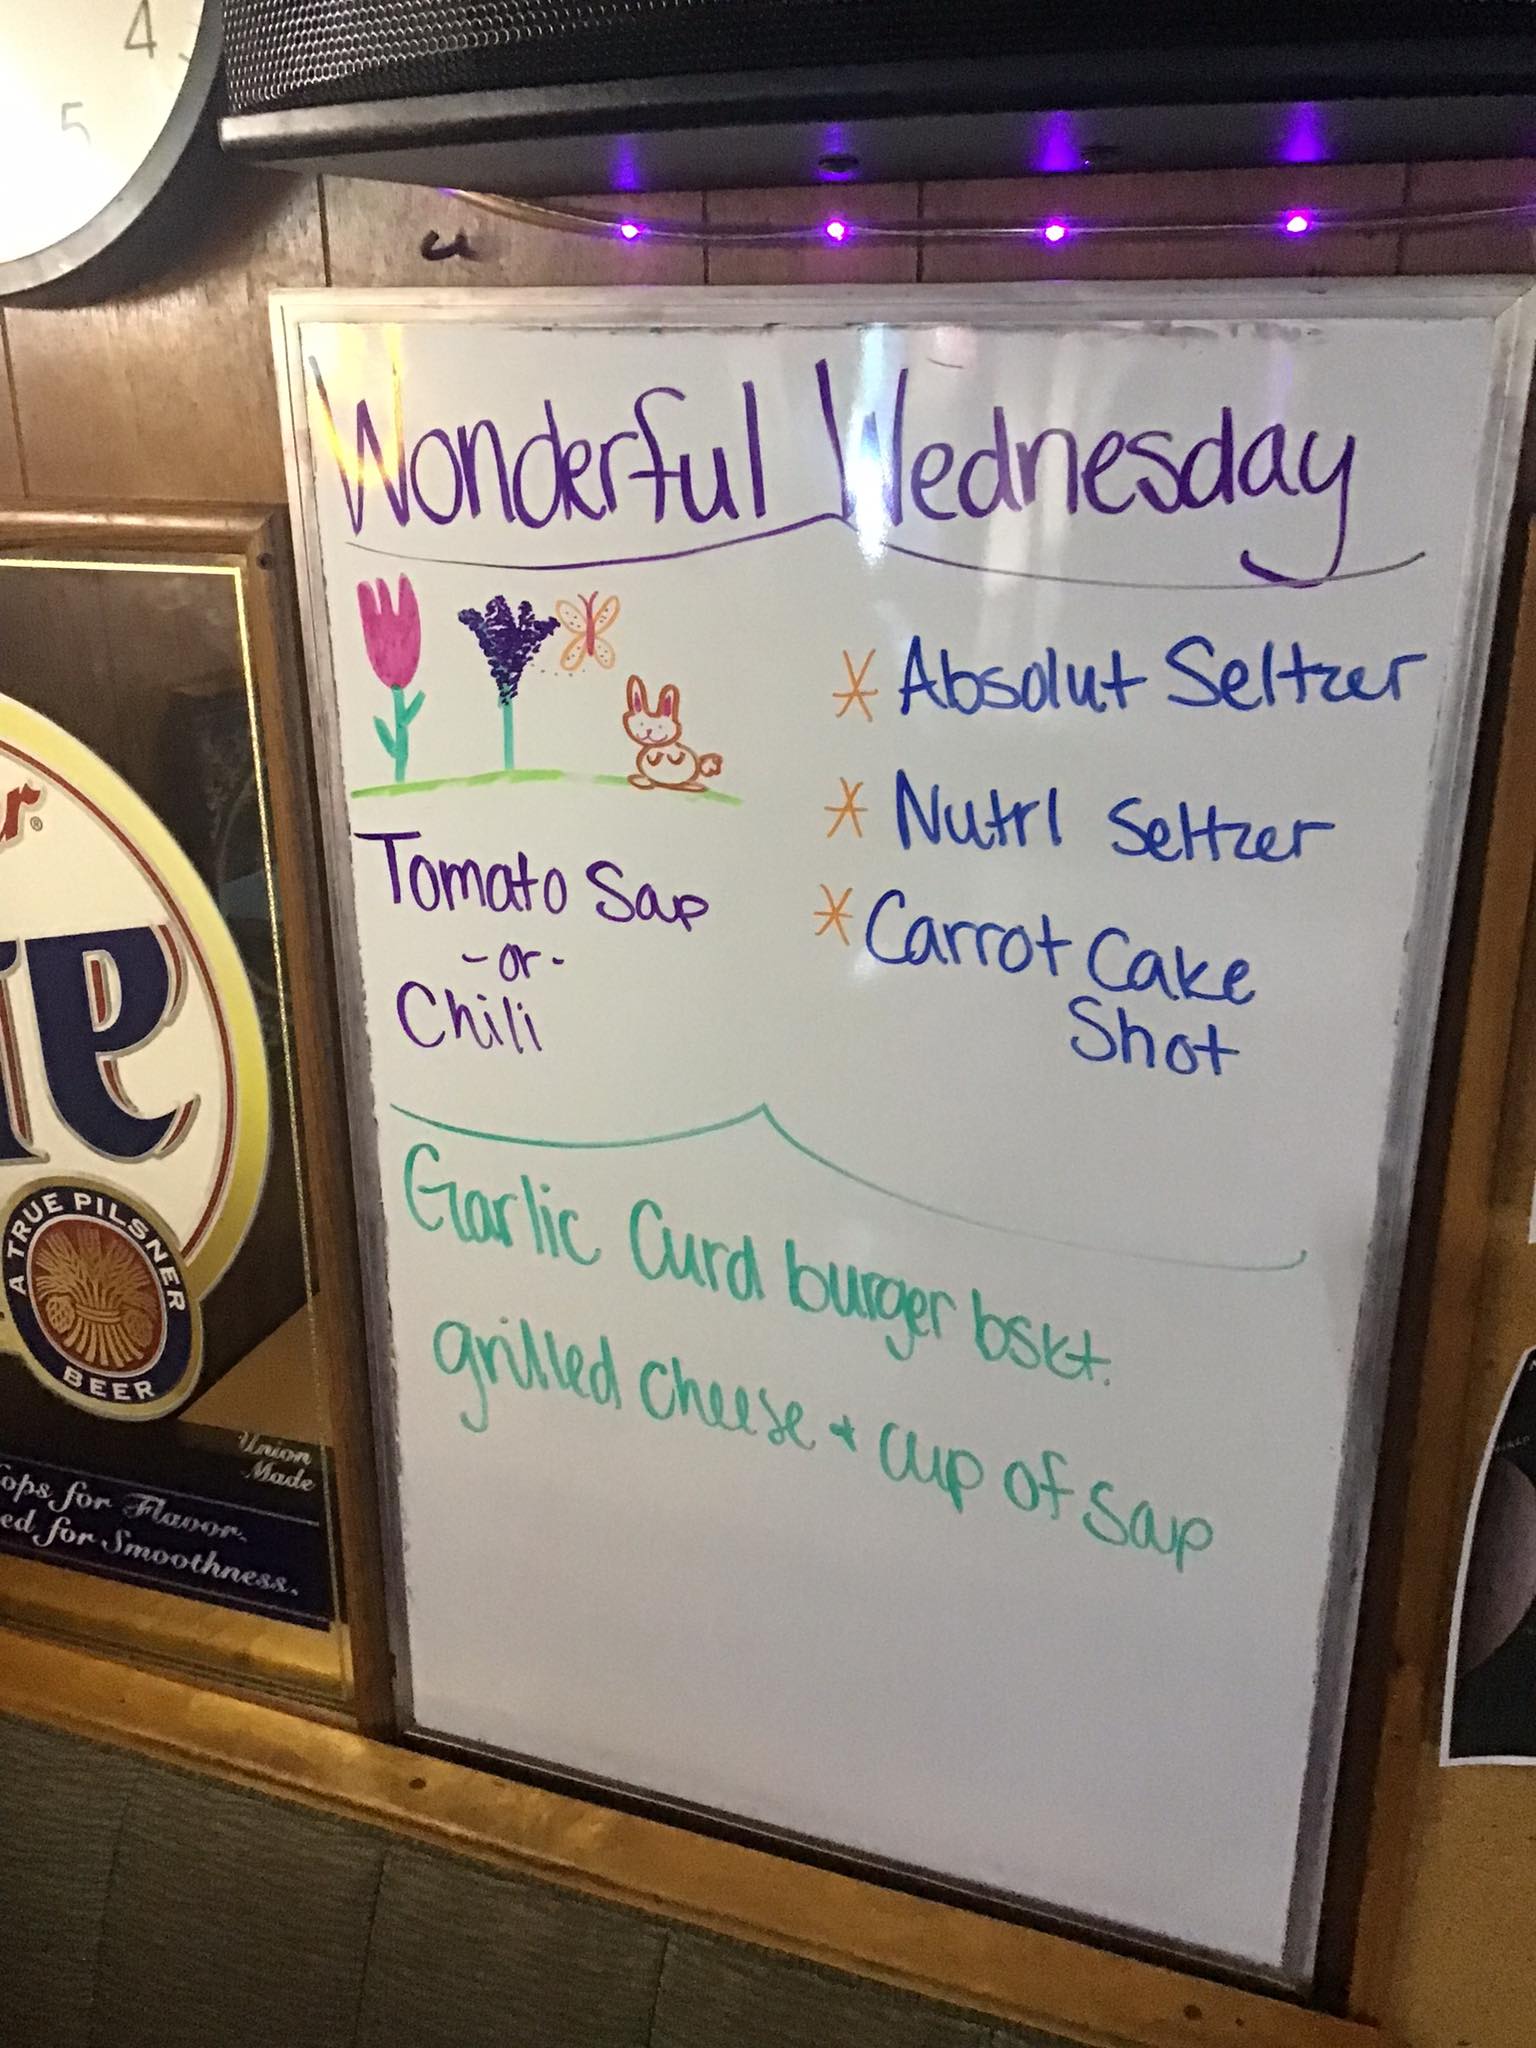 4
5
Wonderful Wednesday
* Absolut Seltzer
* Nutrl Seltzer
* Carrot Cake
Shot
Tomato Soup
-or-
Chili
Garlic Curd burger bskt.
grilled cheese + cup of Soup
A TRUE PILSNER
BEER
Union
Made
ops for Flavor.
ed for Smoothness.